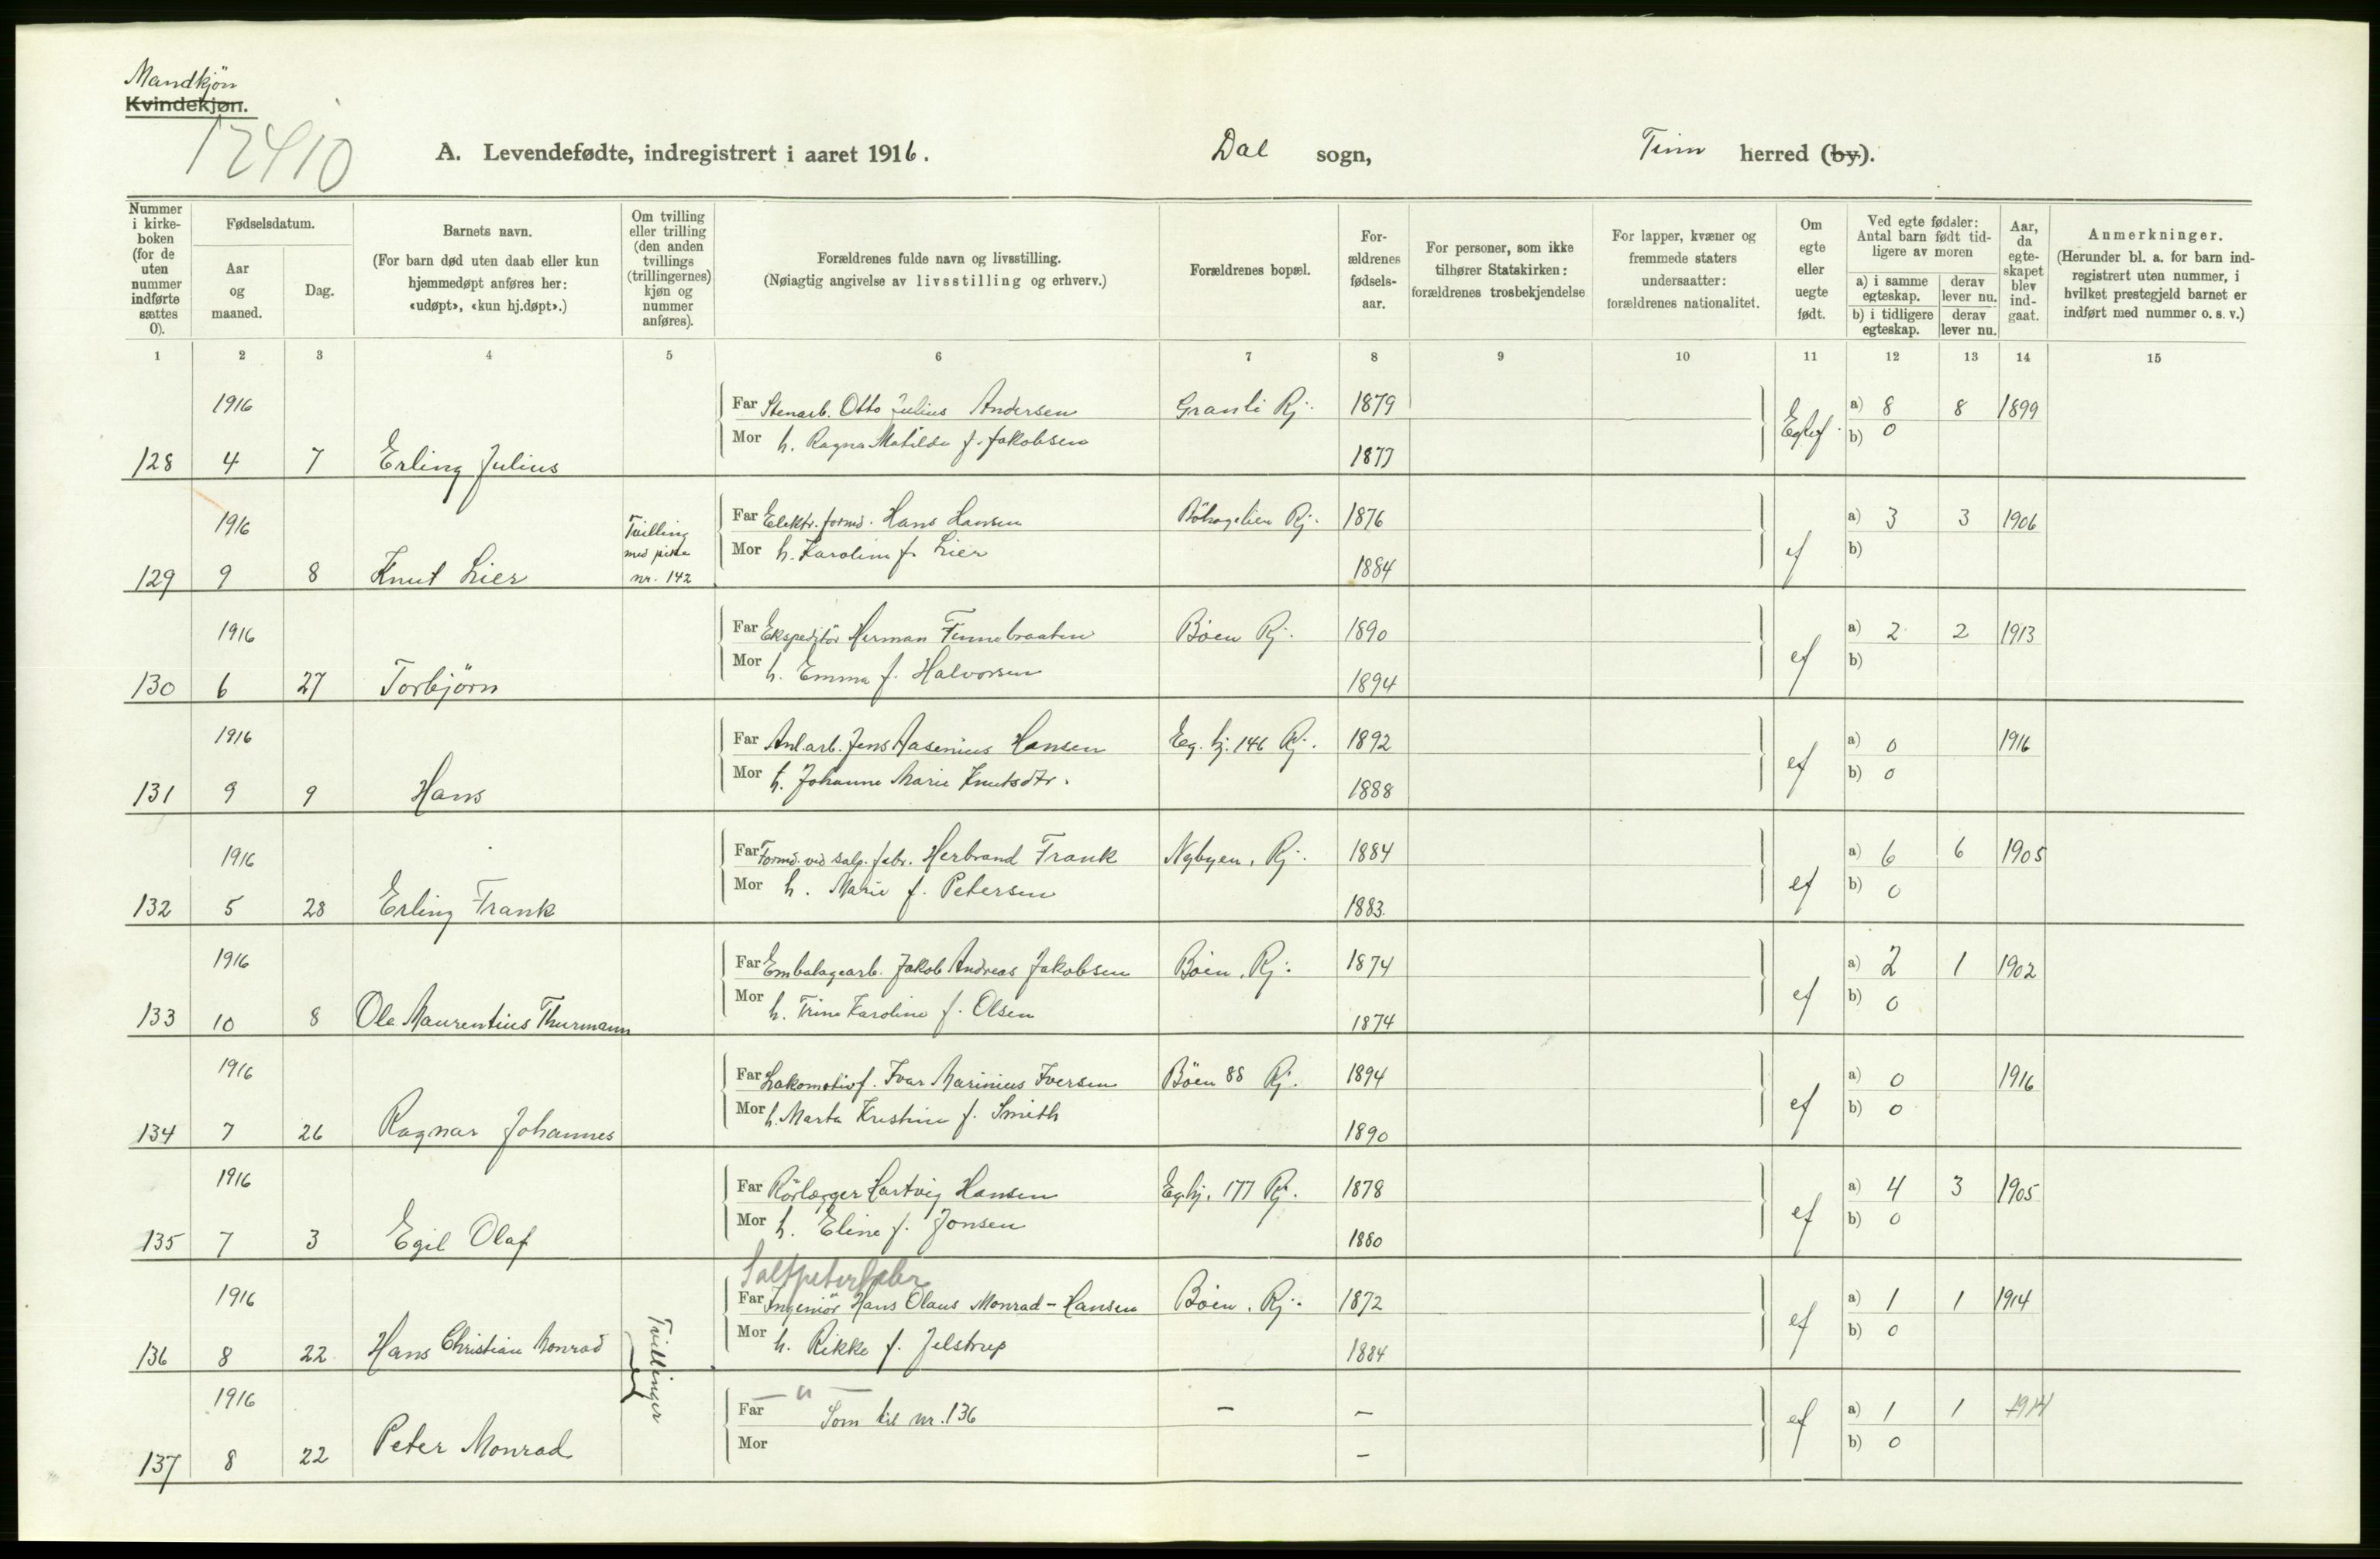 Mandkjön
Kvindekjøn.
12410
A. Levendefødte, indregistrert i aaret 1916. Dal sogn, Tinn herred (by).
Nummer i kirkeboken (for de uten nummer indførte sættes 0).
Fødselsdatum.
Aar og maaned.
Dag.
Barnets navn.
(For barn død uten daab eller kun hjemmedøpt anføres her: «udøpt», «kun hj.døpt».)
Om tvilling eller trilling (den anden tvillings (trillingernes) kjøn og nummer anføres).
Forældrenes fulde navn og livsstilling.
(Nøiagtig angivelse av livsstilling og erhverv.)
Forældrenes bopæl.
Forældrenes fødselsaar.
For personer, som ikke tilhører Statskirken: forældrenes trosbekjendelse
For lapper, kvæner og fremmede staters undersaatter: forældrenes nationalitet.
Om egte eller uegte født.
Ved egte fødsler: Antal barn født tidligere av moren
a) i samme egteskap. derav lever nu.
b) i tidligere egteskap. derav lever nu.
Aar, da egteskapet blev indgaat.
Anmerkninger.
(Herunder bl. a. for barn indregistrert uten nummer, i hvilket prestegjeld barnet er indført med nummer o. s. v.)
1 2 3 4 5 6 7 8 9 10 11 12 13 14 15
1916 Far Stenarb. Otto Julius Andersen Granli Rj. 1879 a) 8 8 1899
128 4 7 Erling Julius Mor h. Ragna Matilde f. Jakobsen 1877 b) 0
1916 Tvilling Far Elektr. formd. Hans Hansen Rj. 1876 a) 3 3 1906
129 9 8 Knut Lier med pike nr. 142 Mor h. Karoline f. Lier 1884 ef b)
1916 Far Ekspeditör Herman Finnebraaten Böen Rj. 1890 a) 2 2 1913
130 6 27 Torbjörn Mor h. Emma f. Halvorsen 1894 ef b)
1916 Far Anl.arb. Jens Aasenius Hansen Eg. hj. 146 Rj. 1892 a) 0 1916
131 9 9 Hans Mor h. Johanne Marie Knutsdtr. 1888 ef b) 0
1916 Far Formd. ved salp. fabr. Herbrand Frank Nybyen, Rj. 1884 a) 6 6 1905
132 5 28 Erling Frank Mor h. Marie f. Petersen 1883. ef b) 0
1916 Far Embalagearb. Jakob Andreas Jakobsen Böen, Rj. 1874 a) 2 1 1902
133 10 8 Ole Maurentius Thurmann Mor h. Trine Karoline f. Olsen 1874 ef b) 0
1916 Far Lokomotivf. Ivar Marinius Iversen Böen 88 Rj. 1894 a) 0 1916
134 7 26 Ragnar Johannes Mor h. Marta Kristine f. Smith 1890 ef b) 0
1916 Far Rörlægger Hartvig Hansen Eg.hj. 177 Rj. 1878 a) 4 3 1905
135 7 3 Egil Olaf Mor h. Eline f. Jonsen 1880 ef b) 0
Saltpeterfabr
1916 Far Ingeniör Hans Olaus Monrad-Hansen Böen. Rj. 1872 a) 1 1 1914
136 8 22 Hans Christian Monrad Tvillinger Mor h. Rikke f. Jelstrup 1884 ef b) 0
— " —
1916 Far Som til nr. 136 – – a) 1 1 1914
137 8 22 Peter Monrad Mor – ef b) 0